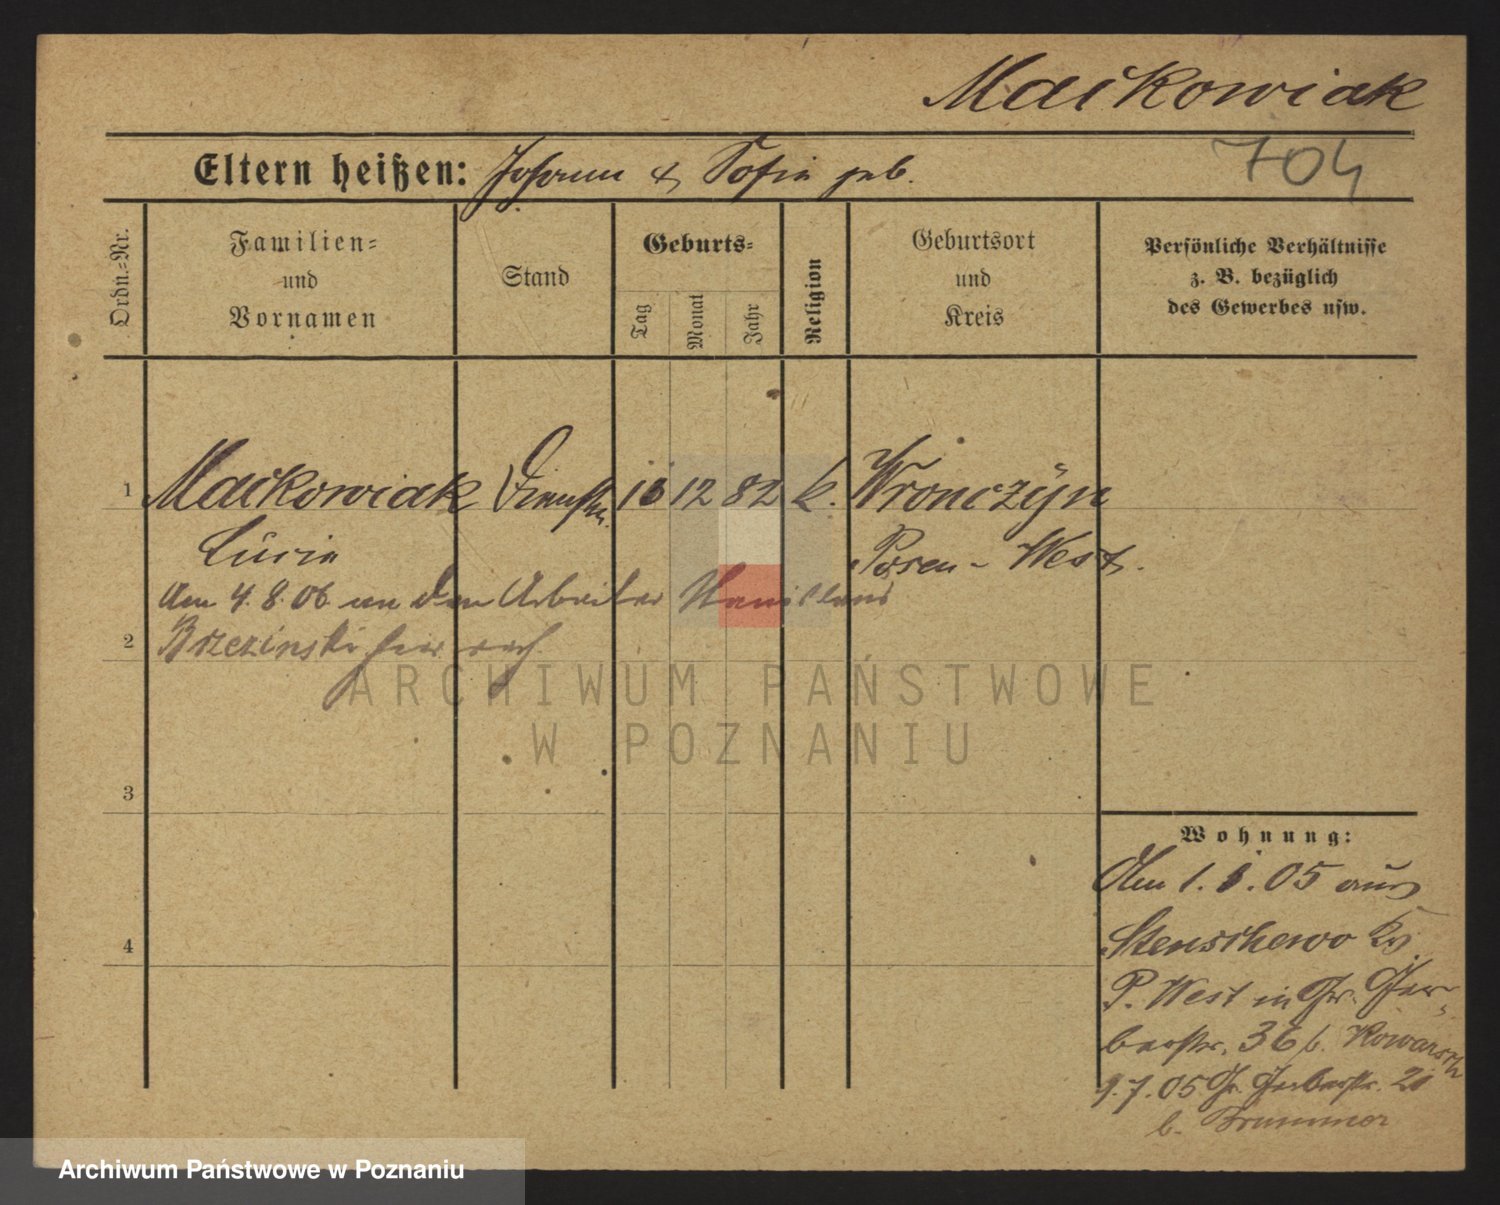 Maćkowiak
704
Eltern heißen: Johann & Sofia geb.
Ordn.-Nr.
Familien-
und
Vornamen
Stand
Geburts-
Tag
Monat
Jahr
Religion
Geburtsort
und
Kreis
Persönliche Verhältnisse
z. B. bezüglich
des Gewerbes usw.
1 Maćkowiak 12 82 k. Wronczÿn
Lucia Posen-West.
Am 4.8.06 an den Arbeiter
Brzezinski
2
3
4
Wohnung:
Am 1. 05 aus
Stenschewo Kr.
P. West in Gr. Ger-
berstr. 36 b.
9.7.05 Gr. Gerberstr.
b. Brummer
ARCHIWUM PAŃSTWOWE
W POZNANIU
Archiwum Państwowe w Poznaniu